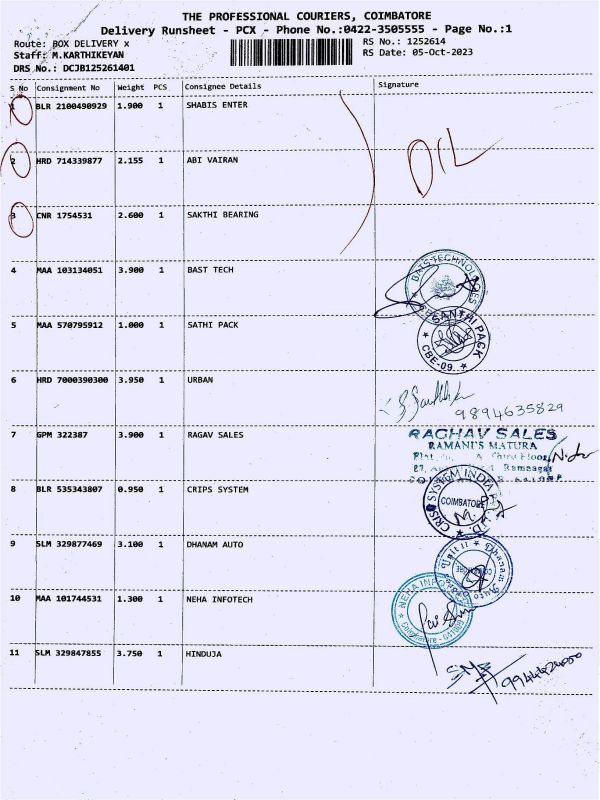 THE PROFESSIONAL COURIERS, COIMBATORE
Delivery Runsheet - PCX - Phone No.:0422-3505555 - Page No.:1
Route: BOX DELIVERY x
RS No.: 1252614
Staff: M.KARTHIKEYAN
RS Date: 05-Oct-2023
DRS No.: DCJB125261401
S No Consignment No Weight PCS Consignee Details Signature
1 BLR 2100490929 1.900 1 SHABIS ENTER
2 HRD 714339877 2.155 1 ABI VAIRAN
3 CNR 1754531 2.600 1 SAKTHI BEARING
4 MAA 103134051 3.900 1 BAST TECH
BATS TECHNOLOGIES
5 MAA 570795912 1.000 1 SATHI PACK
SANTHI PACK
CBE-09
6 HRD 7000390300 3.950 1 URBAN
9894635829
7 GPM 322387 3.900 1 RAGAV SALES
RAGHAV SALES
RAMANI'S MATURA
Third Floor
27,
Ramnagar
8 BLR 535343807 0.950 1 CRIPS SYSTEM
SYSTEM INDIA
COIMBATORE
9 SLM 329877469 3.100 1 DHANAM AUTO
Unit II Dhanam
10 MAA 101744531 1.300 1 NEHA INFOTECH
NEHA
Coimbatore
11 SLM 329847855 3.750 1 HINDUJA